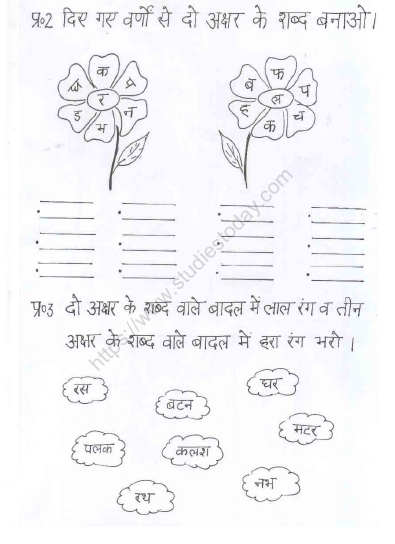 प्र०2 दिए गए वर्णों से दो अक्षर के शब्द बनाओ।
क
प्र
न
भ
ड
र
ब
फ
प
च
क
ह
ल
https://www.studiestoday.com
प्र०3 दो अक्षर के शब्द वाले बादल में लाल रंग व तीन
अक्षर के शब्द वाले बादल में हरा रंग भरो।
रस
घर
बटन
मटर
पलक
कलश
नभ
रथ